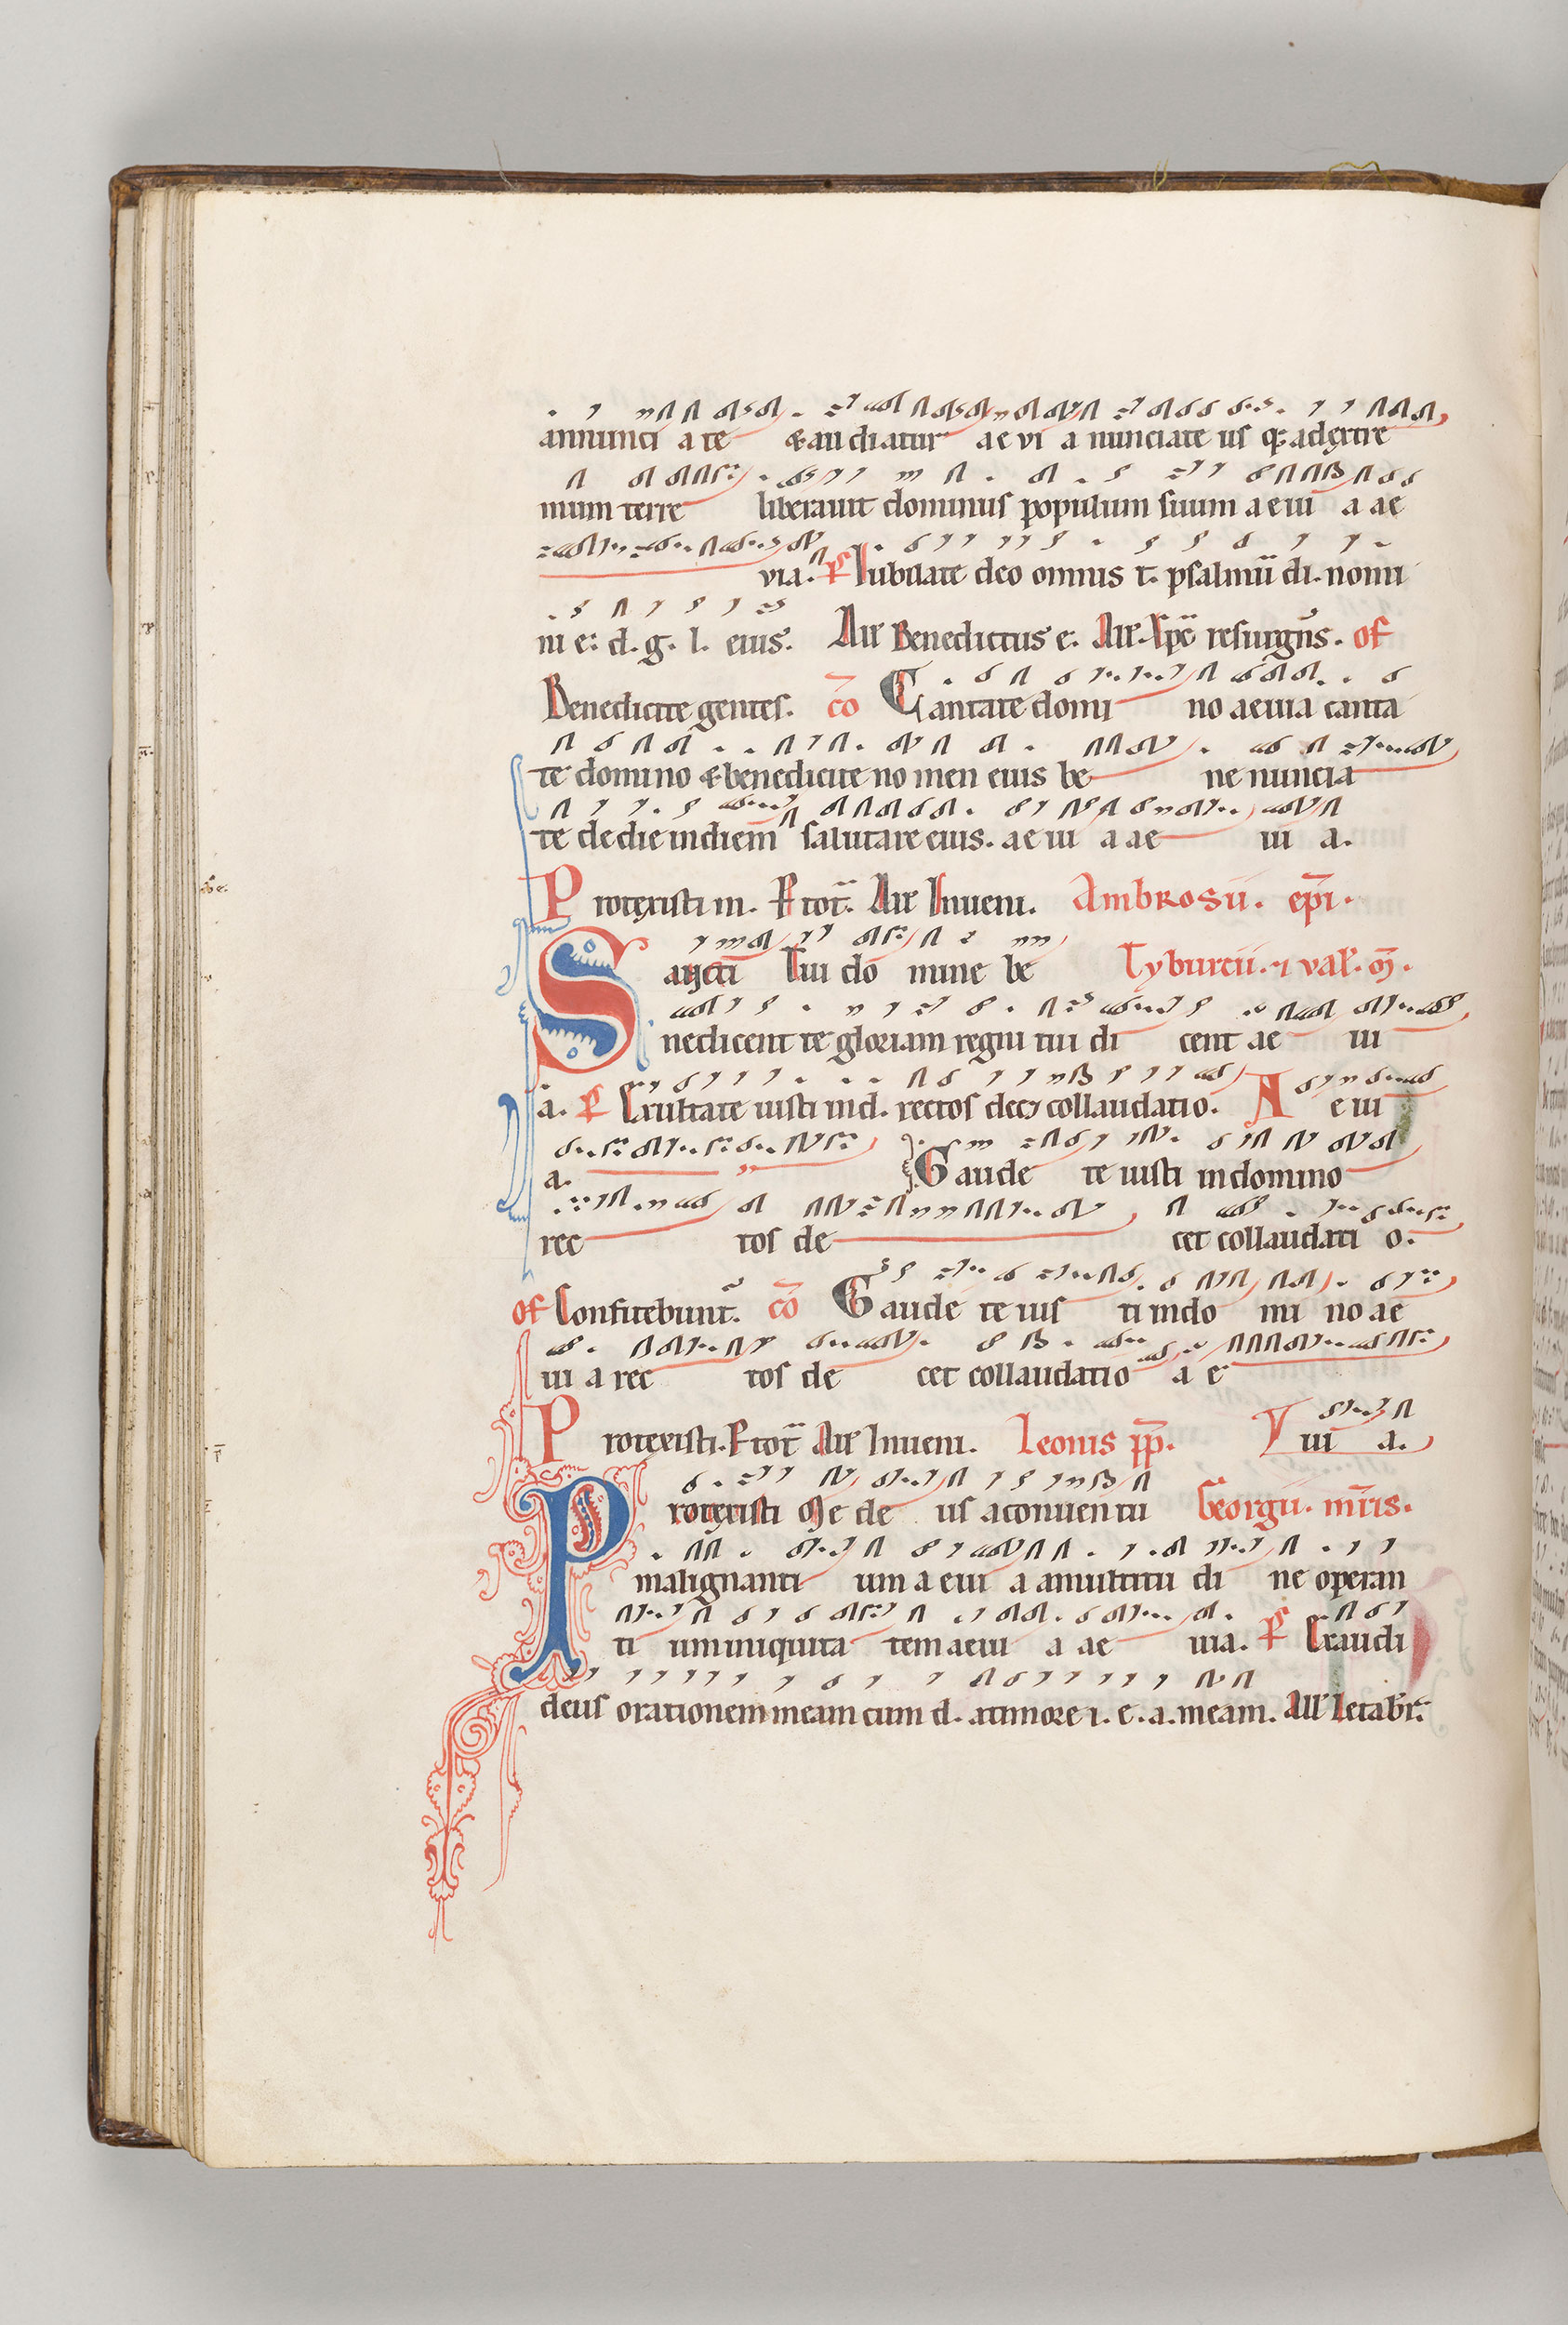 annunci a te & au diatur ae vi a nunciate us q: ad extre
mum terre liberauit dominus populum suum a e ui a ae
via. Ps Iubilate deo omnis t. psalmū di. nomi
ni e: d. g. l. eius. Alle Benedictus e. Alle. Xpc resurgēs. of
Benedicite gentes. cō Cantate domi no aeuia canta
te domino & benedicite no men eius be ne nuncia
te de die in diem salutare eius. ae ui a ae ui a.
Protexisti m. P tot. Alle Inueni. Ambrosii. epī.
Sancti Tui do mine be Tyburtii. & val. m.
nedicent te gloriam regni tui di cent ae ui
a. Ps Exultate iusti in d. rectos decet collaudatio. A e ui
a. Gaude te iusti in domino
rec tos de cet collaudati o.
of Confitebunt. cō Gaude te ius ti in do mi no ae
ui a rec tos de cet collaudatio a e
Protexisti. P tot Alle Inueni. Leonis pp. V ui a.
Protexisti Me de us a conuen tu Georgii. mr̄is.
malignanti um a e ui a a multitu di ne operan
ti um iniquita tem aeui a ae uia. Ps Exaudi
deus orationem meam cum d. a timore i. e. a. meam. All' Letabit.